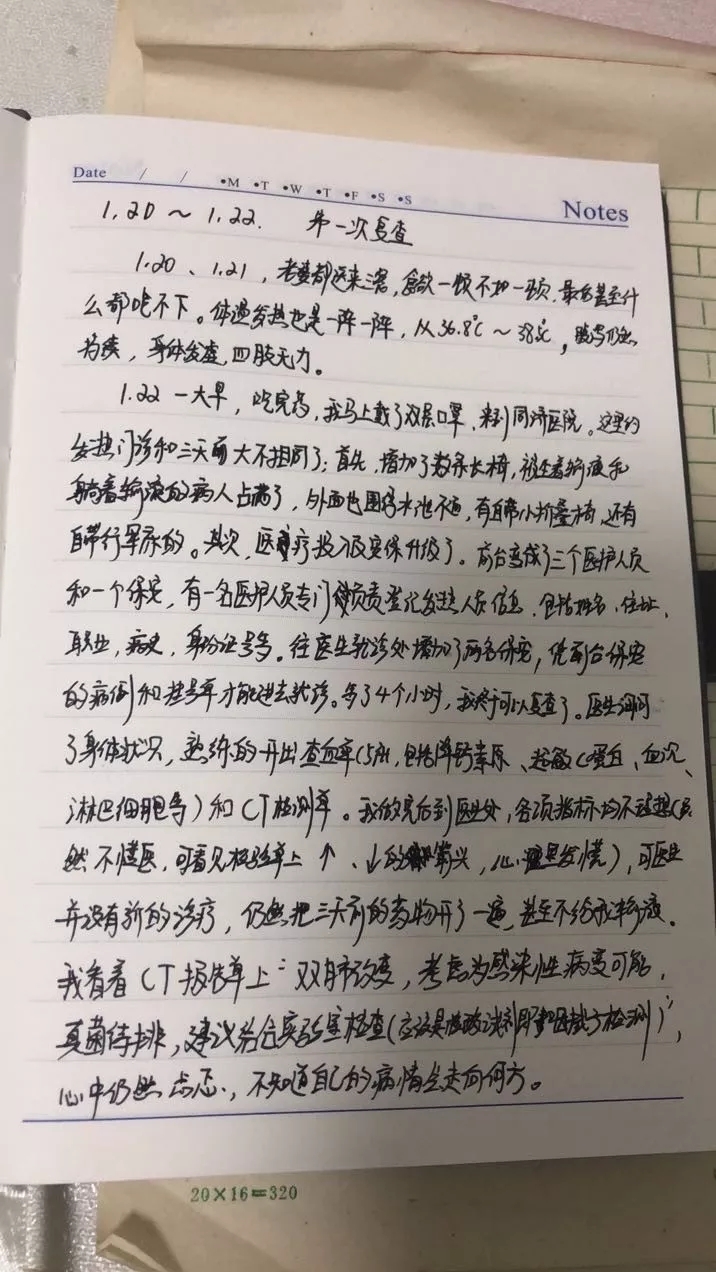 Date / / •M •T •W •T •F •S •S
Notes
1.20 ~ 1.22. 第一次复查
1.20、1.21，老婆都送来三餐，食欲一顿不如一顿，最后甚至什
么都吃不下。体温发热也是一阵一阵，从36.8℃~38℃，腹泻仍然
持续，身体发虚，四肢无力。
1.22 一大早，吃完药，我马上戴了双层口罩，来到同济医院。这里的
发热门诊和三天前大不相同了；首先，增加了数条长椅，被坐着输液和
躺着输液的病人占满了，外面也围得水泄不通，有自带小折叠椅，还有
自带行军床的。其次，医疗投入及安保升级了。前台变成了三个医护人员
和一个保安，有一名医护人员专门负责登记发热人员信息，包括姓名、住址、
职业，病史，身份证号等。往医生就诊处增加了两名保安，凭前台保安
的病例和挂号单才能进去就诊。等了4个小时，我终于可以复查了。医生询问
了身体状况，熟练的开出查血单(5项，包括降钙素原、超敏C蛋白、血沉、
淋巴细胞等)和CT检测单。我做完后到医生处，各项指标均不理想(虽
然不懂医，可看见检验单上↑、↓的符号，心里发慌)，可医生
并没有新的诊疗，仍然把三天前的药物开了一遍，甚至不给我输液。
我看着CT报告单上“双肺改变，考虑为感染性病变可能，
真菌待排，建议结合实验室检查(应该是核酸试剂检测)”，
心中仍然忐忑，不知道自己的病情会走向何方。
20×16=320